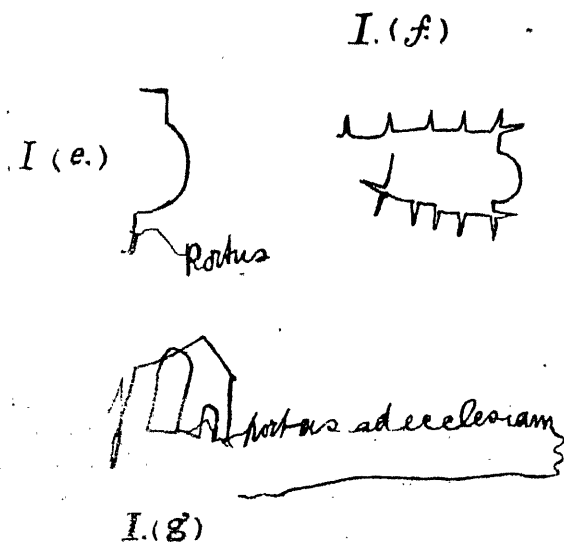 I.(f.)
I (e.)
Portus
portus ad ecclesiam
I.(g)